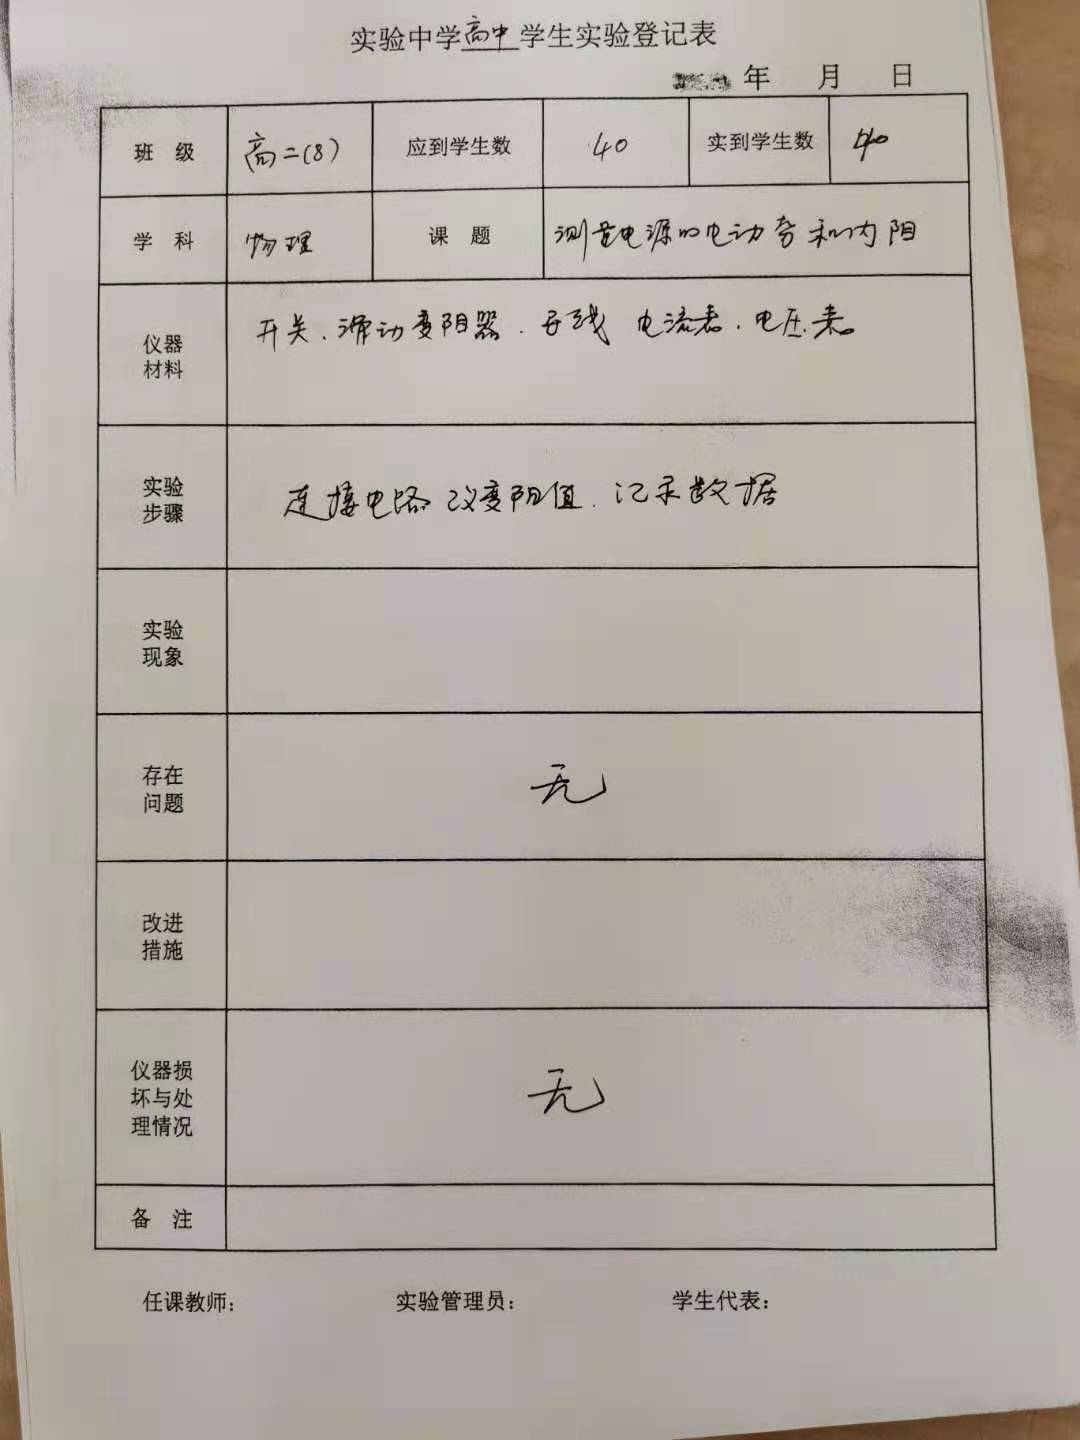 实验中学高中学生实验登记表
年 月 日
班 级 高二(8) 应到学生数 40 实到学生数 40
学 科 物理 课 题 测量电源的电动势和内阻
仪器
材料
开关、滑动变阻器、导线 电流表、电压表。
实验
步骤
连接电路 改变阻值、记录数据
实验
现象
存在
问题
无
改进
措施
仪器损
坏与处
理情况
无
备 注
任课教师: 实验管理员: 学生代表: